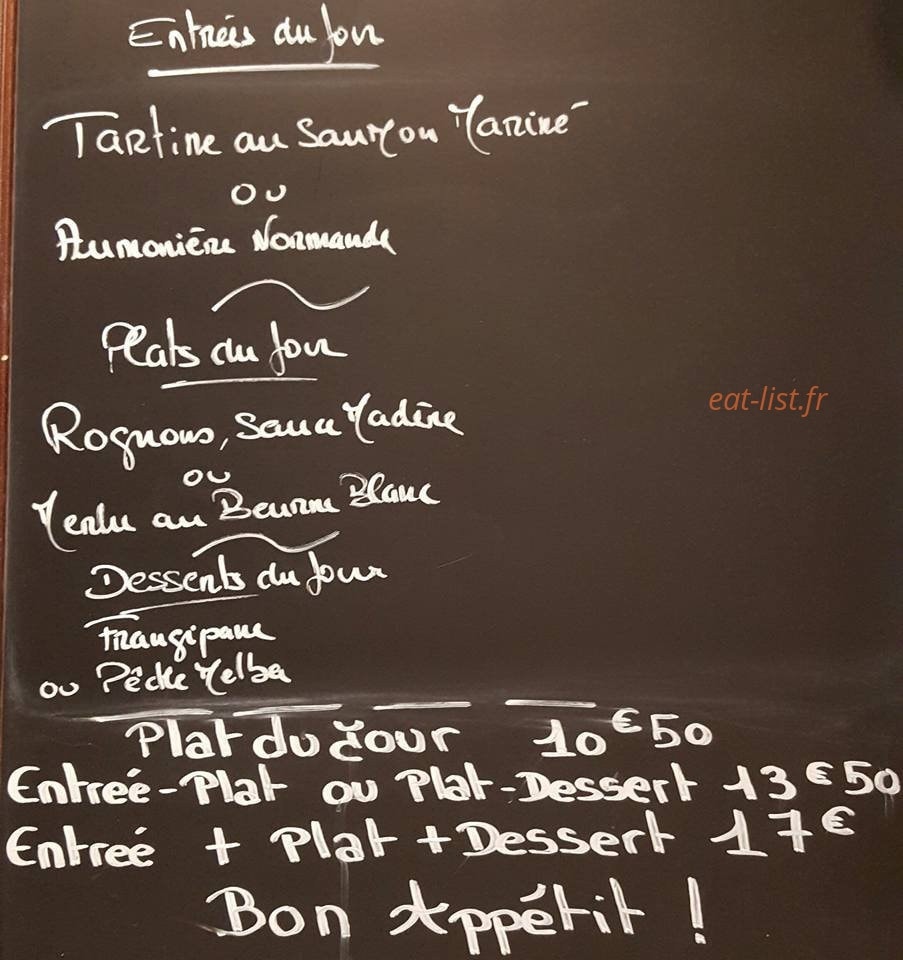 Entrées du Jour
Tartine au Saumon Mariné
ou
Aumonière Normande
Plats du Jour
Rognons, Sauce Madère
ou
Merlu au Beurre Blanc
eat-list.fr
Desserts du Jour
Frangipane
ou Pêche Melba
Plat du Jour 10€50
Entreé-Plat ou Plat-Dessert 13€50
Entreé + Plat + Dessert 17€
Bon Appétit !